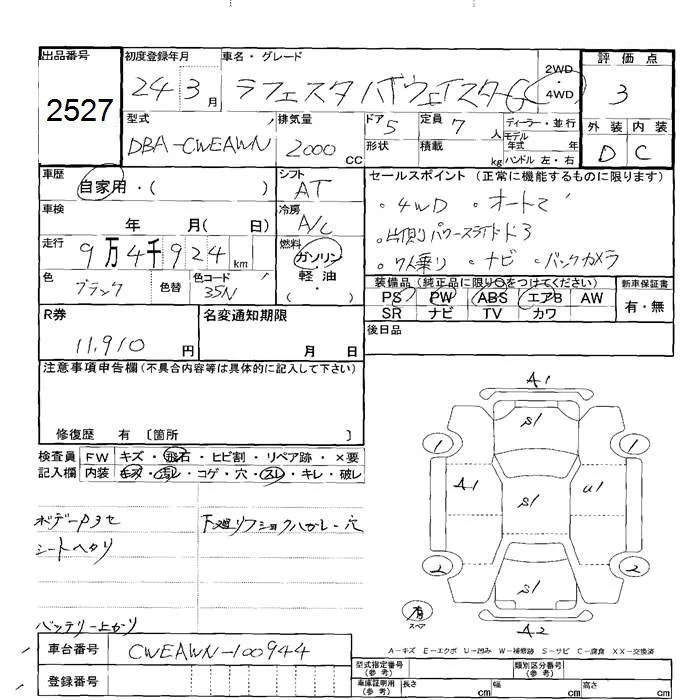 出品番号
2527
初度登録年月
24 3月
車名・グレード
ラフェスタハイウェイスターG
2WD・4WD
評価点
3
外装 内装
D C
型式
DBA-CWEAWN
排気量
2000cc
ドア 5
形状
定員 7人
積載 kg
ディーラー・並行
モデル年式 年
ハンドル 左・右
車歴
自家用・( )
シフト
AT
車検
年 月( 日)
冷房
A/C
走行
9万4千924km
燃料
ガソリン・軽油・( )
色
ブラック
色替
色コード
35N
セールスポイント(正常に機能するものに限ります)
・4WD ・オート
パワースライドドア
・7人乗り ・ナビ ・バックカメラ
装備品(純正品に限り○をつけてください)
PS PW ABS エアB AW
SR ナビ TV カワ
新車保証書
有・無
後日品
R券
11,910円
名変通知期限
月 日
注意事項申告欄(不具合内容等は具体的に記入して下さい)
修復歴 有 〔箇所 〕
検査員記入欄
FW キズ・飛石・ヒビ割・リペア跡・×要
内装 キズ・汚レ・コゲ・穴・スレ・キレ・破レ
ボデー
シートヘタリ
下廻りフショクハガレ・穴
バッテリー上がり
車台番号
CWEAWN-100944
A1
S1
1 1
A1 S1 U1
2 2
S1
有
スペア
A2
A-キズ E-エクボ U-凹み W-補修跡 S-サビ C-腐食 XX-交換済
型式指定番号(参考)
類別区分番号(参考)
車庫証明用(参考) 長さ cm 幅 cm 高さ cm